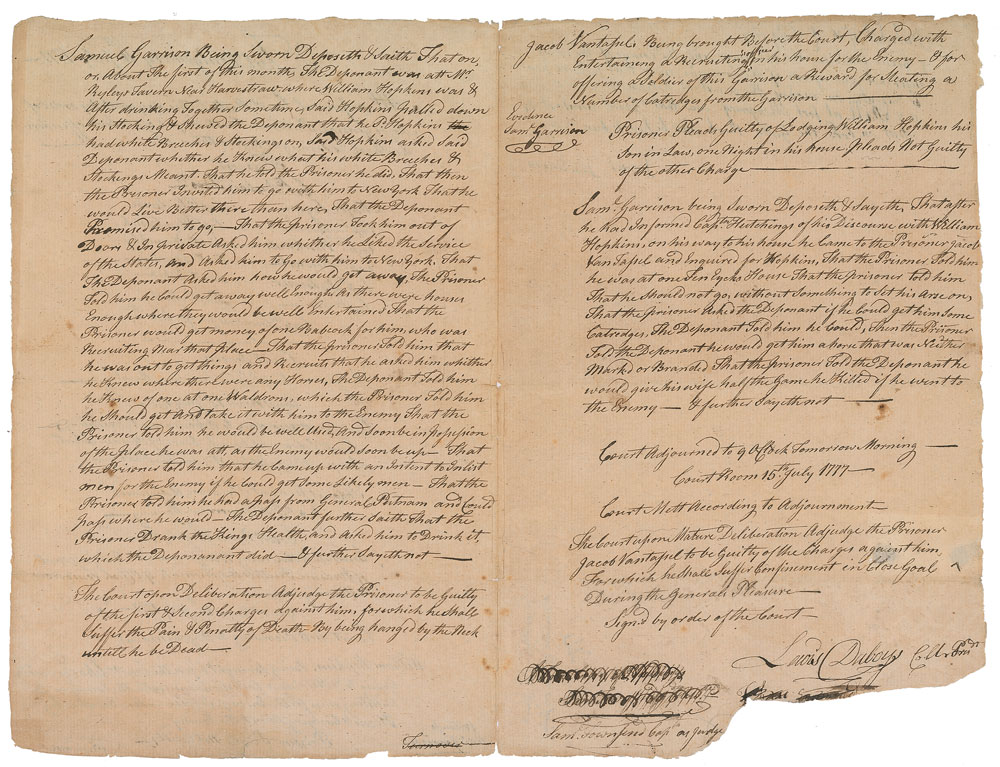 Samuel Garrison Being Sworn Deposeth & Saith That on
or About The first of this month, The Deponant was att Mr
Ryleys Tavern Near Harvestraw, where William Hopkins was &
After drinking Together Sometime, Said Hopkins pulled down
his Stocking & Shewed the Deponant that he sd Hopkins
had white Breeches & Stockings on, Said Hopkins asked Said
Deponant whether he Knew what his white Breeches &
Stockings Meant. That he told the Prisoner he did, That then
the Prisoner Invited him to go with him to New York That he
would Live Better there than here, That the Deponant
Promised him to go,— That the prisoner Took him out of
Doors & In private Asked him whether he Liked the Service
of the States, and Asked him to Go with him to New York. That
The Deponant Asked him how he would get away, The Prisoner
Told him he Could get away well Enough, As there were houses
Enough where they would be well Entertained That the
Prisoner would get money of one Babcock for him, who was
Recruiting Near that place— That the prisoner Told him that
he was out to get things and Recruits that he asked him whether
he Knew where there were any Horses, The Deponant Told him
he Knew of one at one Waldrons, which the Prisoner Told him
he Should get And take it with him to the Enemy That the
Prisoner told him he would be well Used, And soon be in possession
of the place he was att, as the Enemy would Soon be up— That
the Prisoner told him that he Came up with an Intent to Inlist
men for the Enemy if he Could get Some Likely men— That the
Prisoner told him he had a pass from General Putnam and Could
pass where he would— The Deponant further Saith That the
Prisoner Drank the Kings Health, and Asked him to Drink it
which the Deponanant did— & further Sayeth not—
The Court upon Deliberation Adjudge the Prisoner to be Guilty
of the first & Second Charges against him, for which he Shall
Suffer the Pain & Penalty of Death— By being hanged by the Neck
untill he be Dead—
Turnover
Jacob Vantapel, Being brought Before the Court, Charged with
Entertaining a Recruiting officer in his house for the Enemy— & for
offering a Soldier of this Garrison a Reward for Stealing a
Number of Catredges from the Garrison
Evedence
Saml Garrison
Prisoner Pleads Guilty of Lodging William Hopkins his
Son in Law, one Night in his house, pleads Not Guilty
of the other Charge
Saml Garrison being Sworn Deposeth & Sayeth, That after
he had Informed Capt Hutchings of his Discourse with William
Hopkins, on his way to his house he Came to the Prisoner Jacob
VanTapel and Inquired for Hopkins, That the Prisoner Told him
he was at one Ten Eycks House That the prisoner told him
That he Should not go, without Something to Set his Arse on,
That the prisoner Asked the Deponant if he Could get him Some
Catredges, The Deponant Told him he Could, Then the Prisoner
Told the Deponant he would get him a horse that was Neither
Markd or Branded, That the prisoner Told the Deponant he
would give his wife half the Game he Killed if he went to
the Enemy— & further Sayeth not—
Court Adjourned to 9 oClock Tomorrow Morning—
Court Room 15th July 1777—
Court Mett According to Adjournment—
The Court upon Mature Deliberation Adjudge the Prisoner
Jacob Vantapel to be Guilty of the Charges against him,
For which he Shall Suffer Confinement in Close Goal
During the Generals Pleasure—
Signd by order of the Court—
Lewis Duboys Coll & Presdt
Saml Townsend Capt as Judge